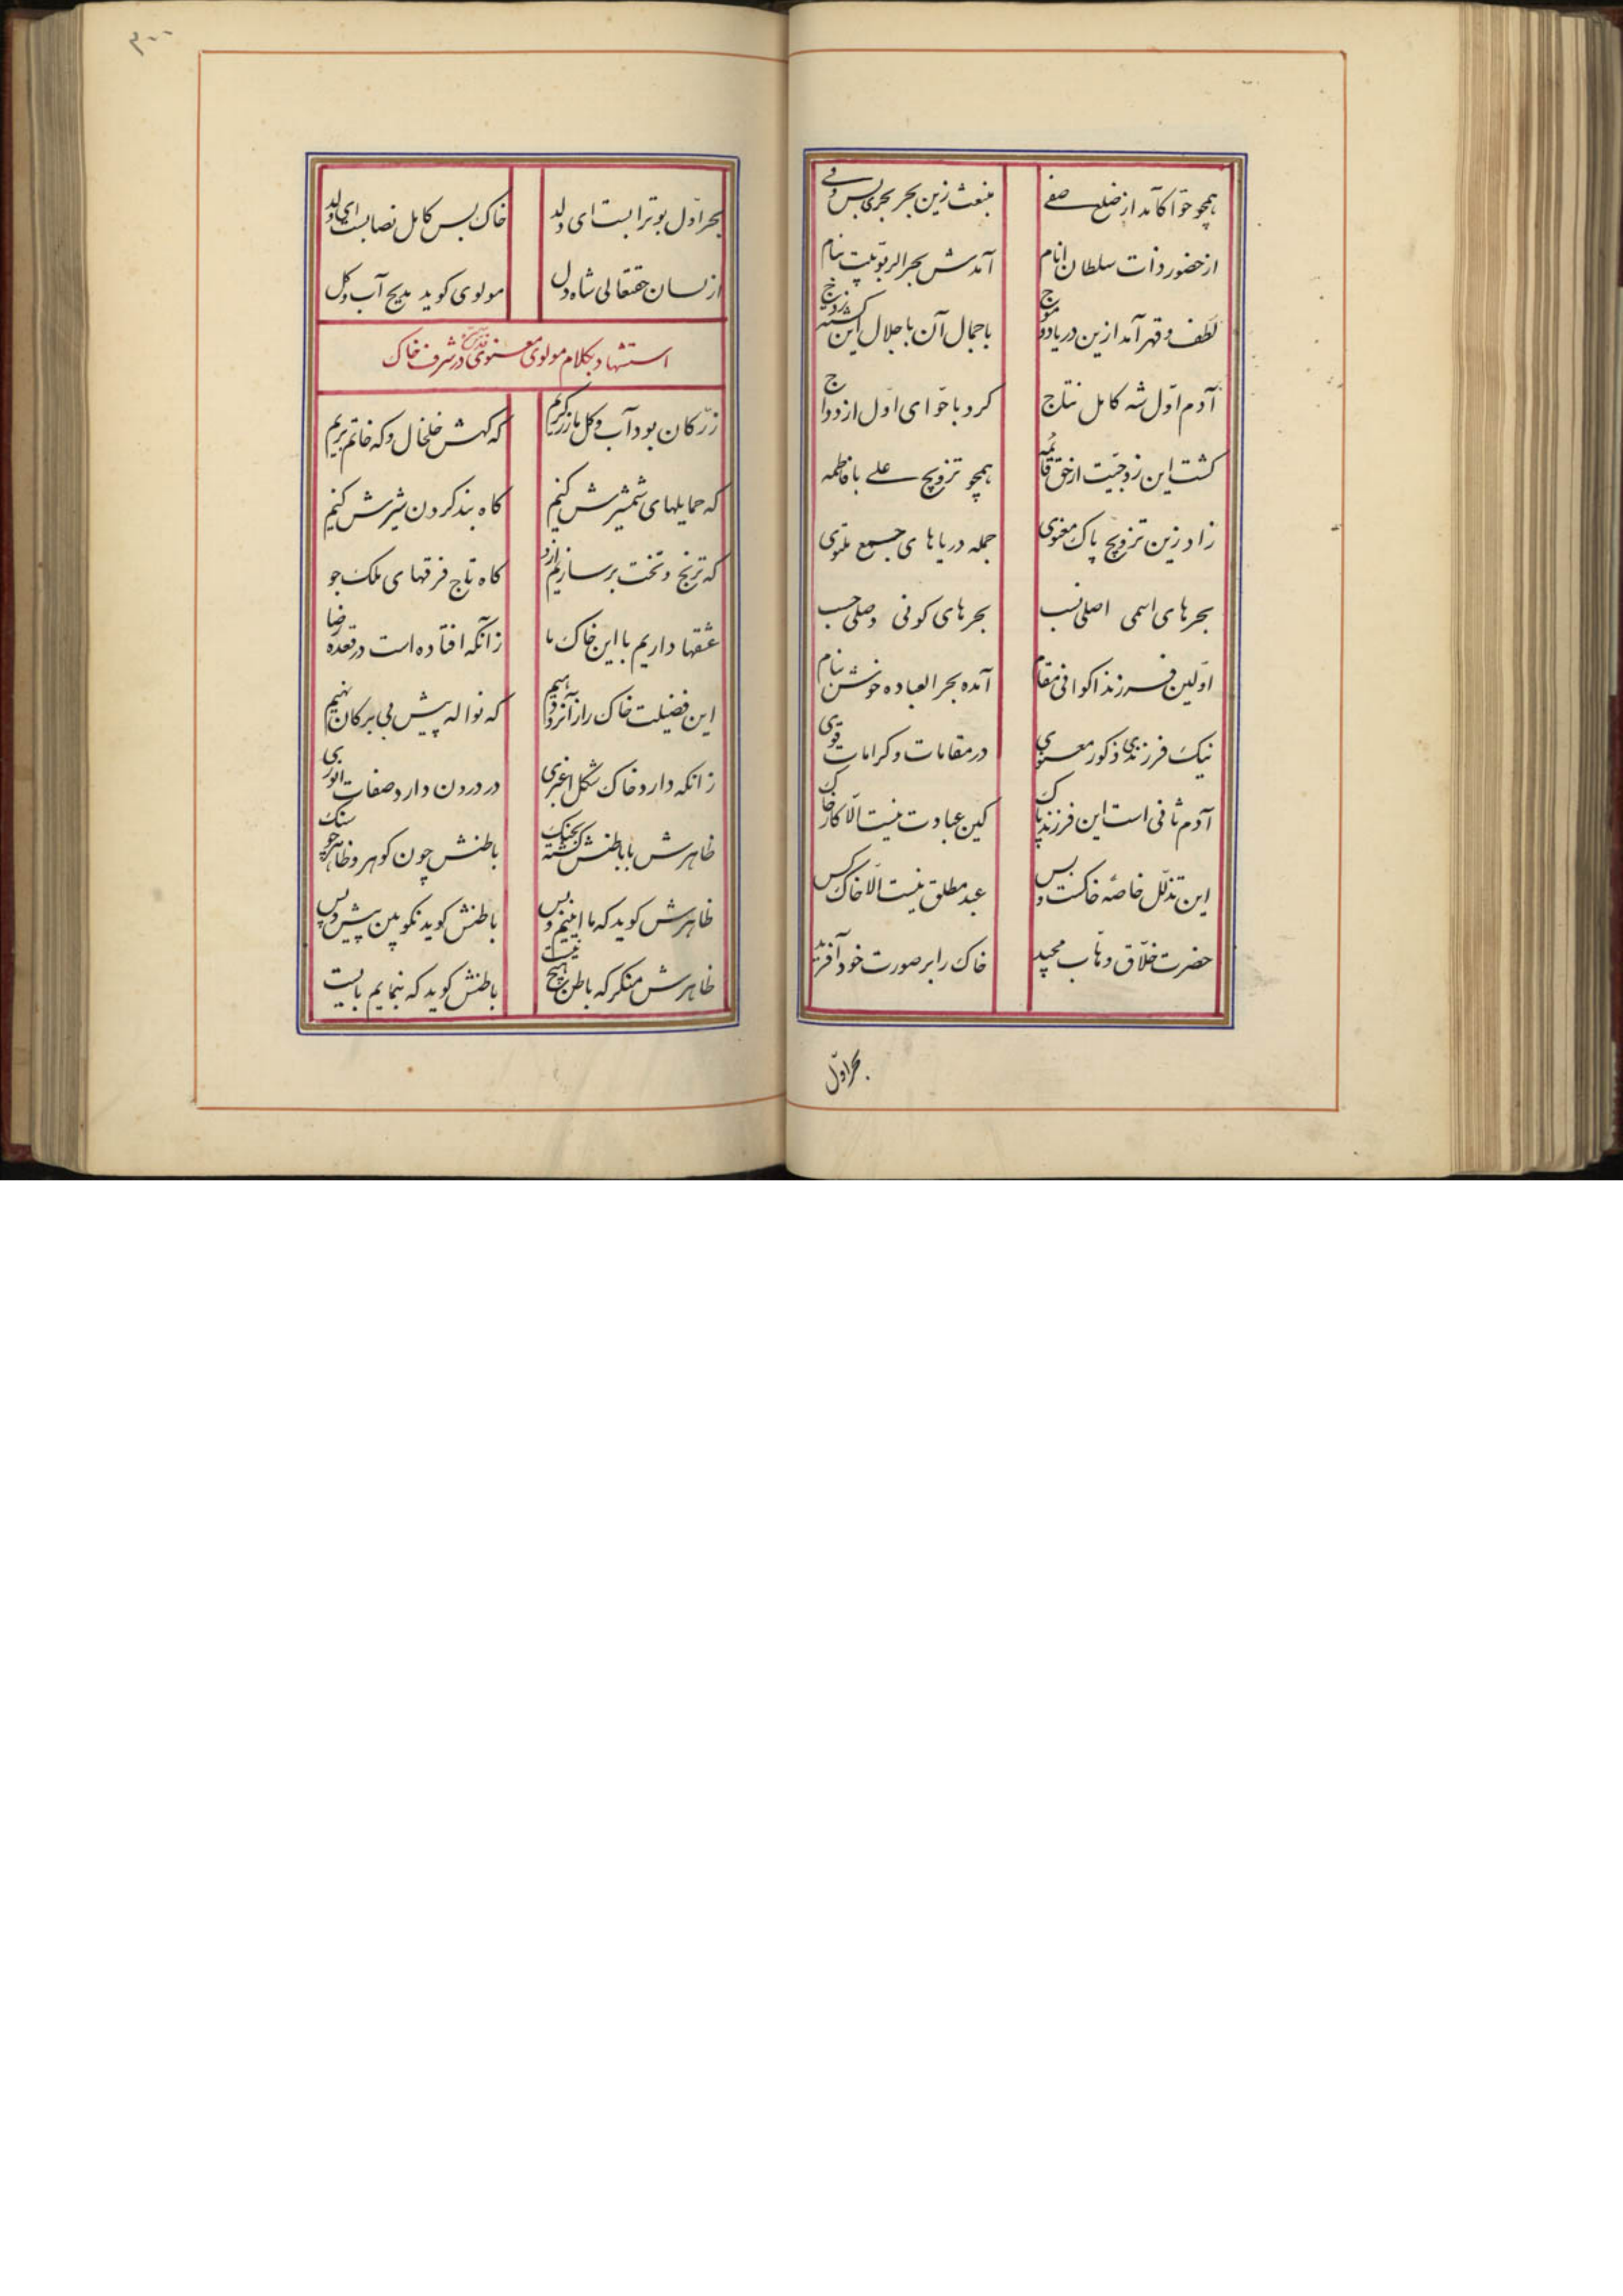 همچو حوّا کآمد از ضلع صفی منبعث زین بحر بحری بس وفی
از حضور ذات سلطان انام آمدش بحر الربوبیت بنام
لطف و قهر آمد ازین دریا دو موج با جمال آن با جلال این گشته زوج
آدم اوّل شه کامل نتاج کرد با حوّای اوّل ازدواج
کشت این زوجیّت از حق قائمه همچو تزویج علی با فاطمه
زاد زین تزویج پاک معنوی جمله دریاهای جمع ملتوی
بحرهای اسمی اصلی نسب بحرهای کونی وصلی حسب
اوّلین فرزند اکوانی مقام آمده بحر العباده خوش بنام
نیک فرزندی ذکور معنوی در مقامات و کرامات قوی
آدم ثانی است این فرزند پاک کین عبادت نیست الّا کار خاک
این تذلّل خاصهٔ خاکست و بس عبد مطلق نیست الّا خاک کس
حضرت خلّاق وهّاب مجید خاک را بر صورت خود آفرید
بحر اوّل
۳۰۰
بحر اوّل بوترابست ای ولد خاک بس کامل نصابست ای ولد
از لسان حقتعالی شاه دل مولوی کوید مدیح آب و کل
استشهاد بکلام مولوی معنوی قدّس سرّه در شرف خاک
زرّ کان بود آب و کل ما زرکریم که کهش خلخال و که خاتم بریم
که حمایلهای شمشیرش کنیم کاه بند کردن شیرش کنیم
که ترنج و تخت بر سازیم ازو کاه تاج فرقهای ملک جو
عشقها داریم با این خاک ما زانکه افتاده است در قعده رضا
این فضیلت خاک را زانرو دهیم که نواله پیش بی برکان نهیم
زانکه دارد خاک شکل اغبری در درون دارد صفات انوری
ظاهرش با باطنش کشته بجنک باطنش چون کوهر و ظاهر چو سنک
ظاهرش کوید که ما اینیم و بس باطنش کوید نکو بین پیش و پس
ظاهرش منکر که باطن هیچ نیست باطنش کوید که بنمایم بایست